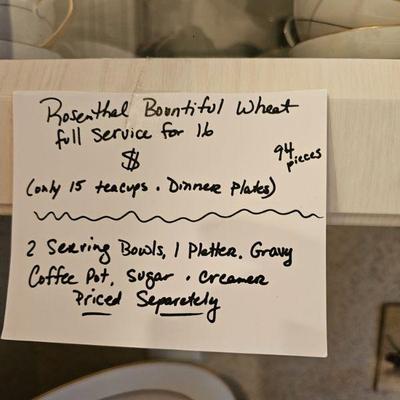 Rosenthal Bountiful Wheat
full Service for 16
$
94
pieces
(only 15 teacups . Dinner Plates)
2 Serving Bowls, 1 Platter. Gravy
Coffee Pot, Sugar . Creamer
Priced Separately